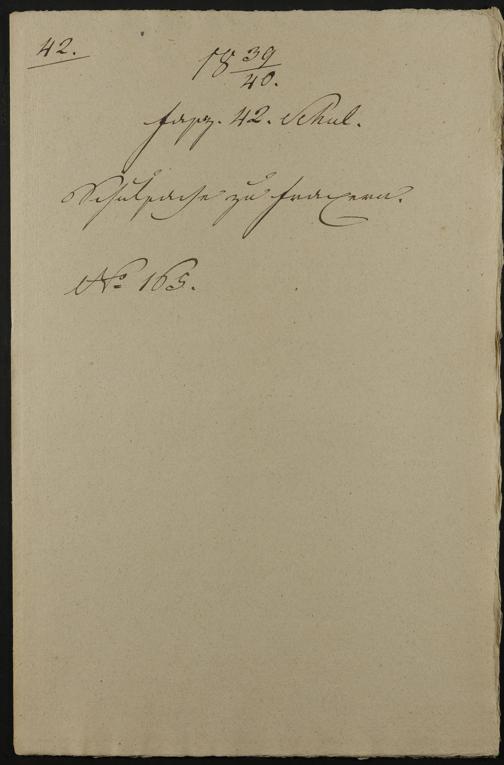 42.
18 39/40.
Fasz. 42. Schul.
Schulsache zu Fraxern.
No 165.